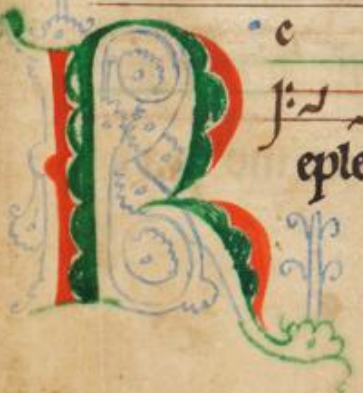 c
Reple